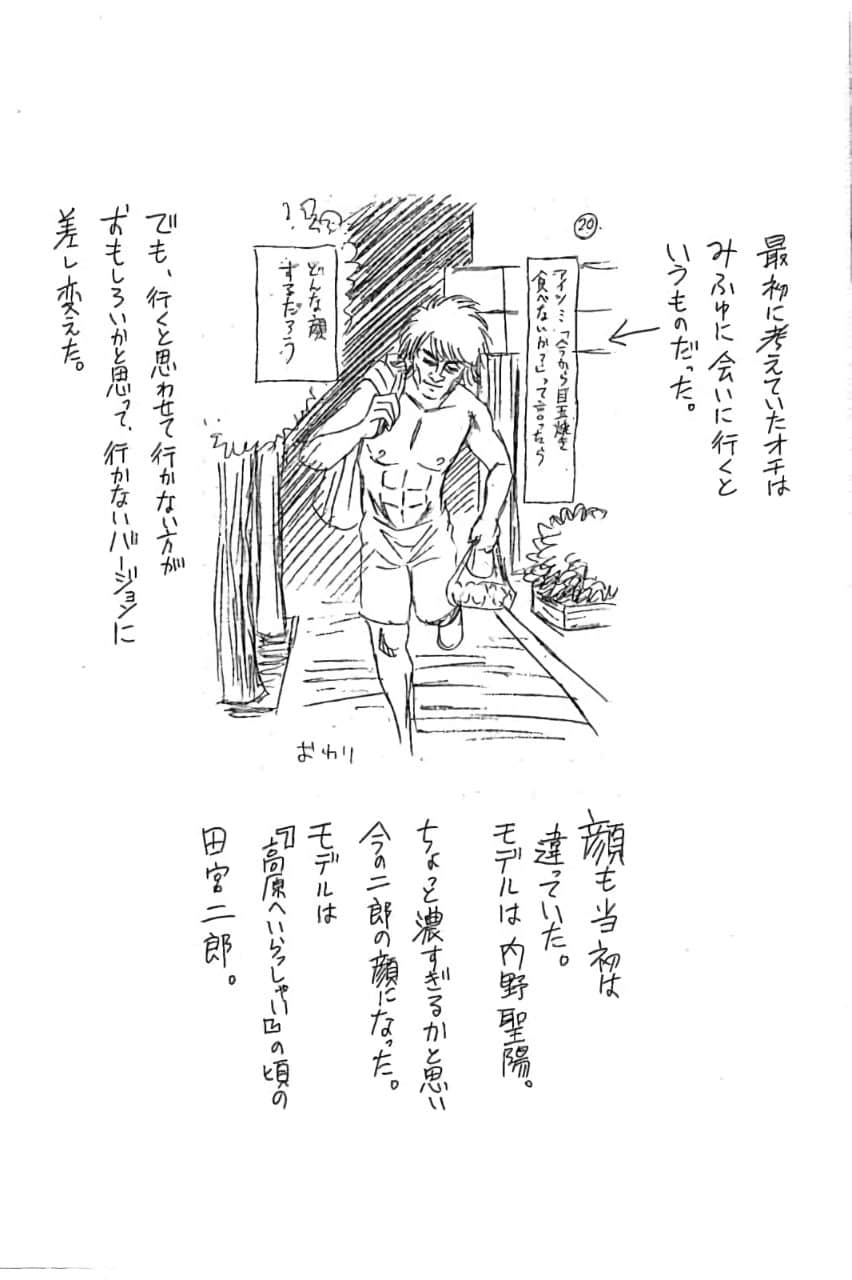 最初に考えていたオチは
みふゆに会いに行くと
いうものだった。
⑳
アイツ…「今から目玉焼を
食べないか?」って言ったら
どんな顔
するだろう
でも、行くと思わせて行かない方が
おもしろいかと思って、行かないバージョンに
差し変えた。
おわり
顔も当初は
違っていた。
モデルは内野聖陽。
ちょっと濃すぎるかと思い
今の二郎の顔になった。
モデルは
『高原へいらっしゃい』の頃の
田宮二郎。